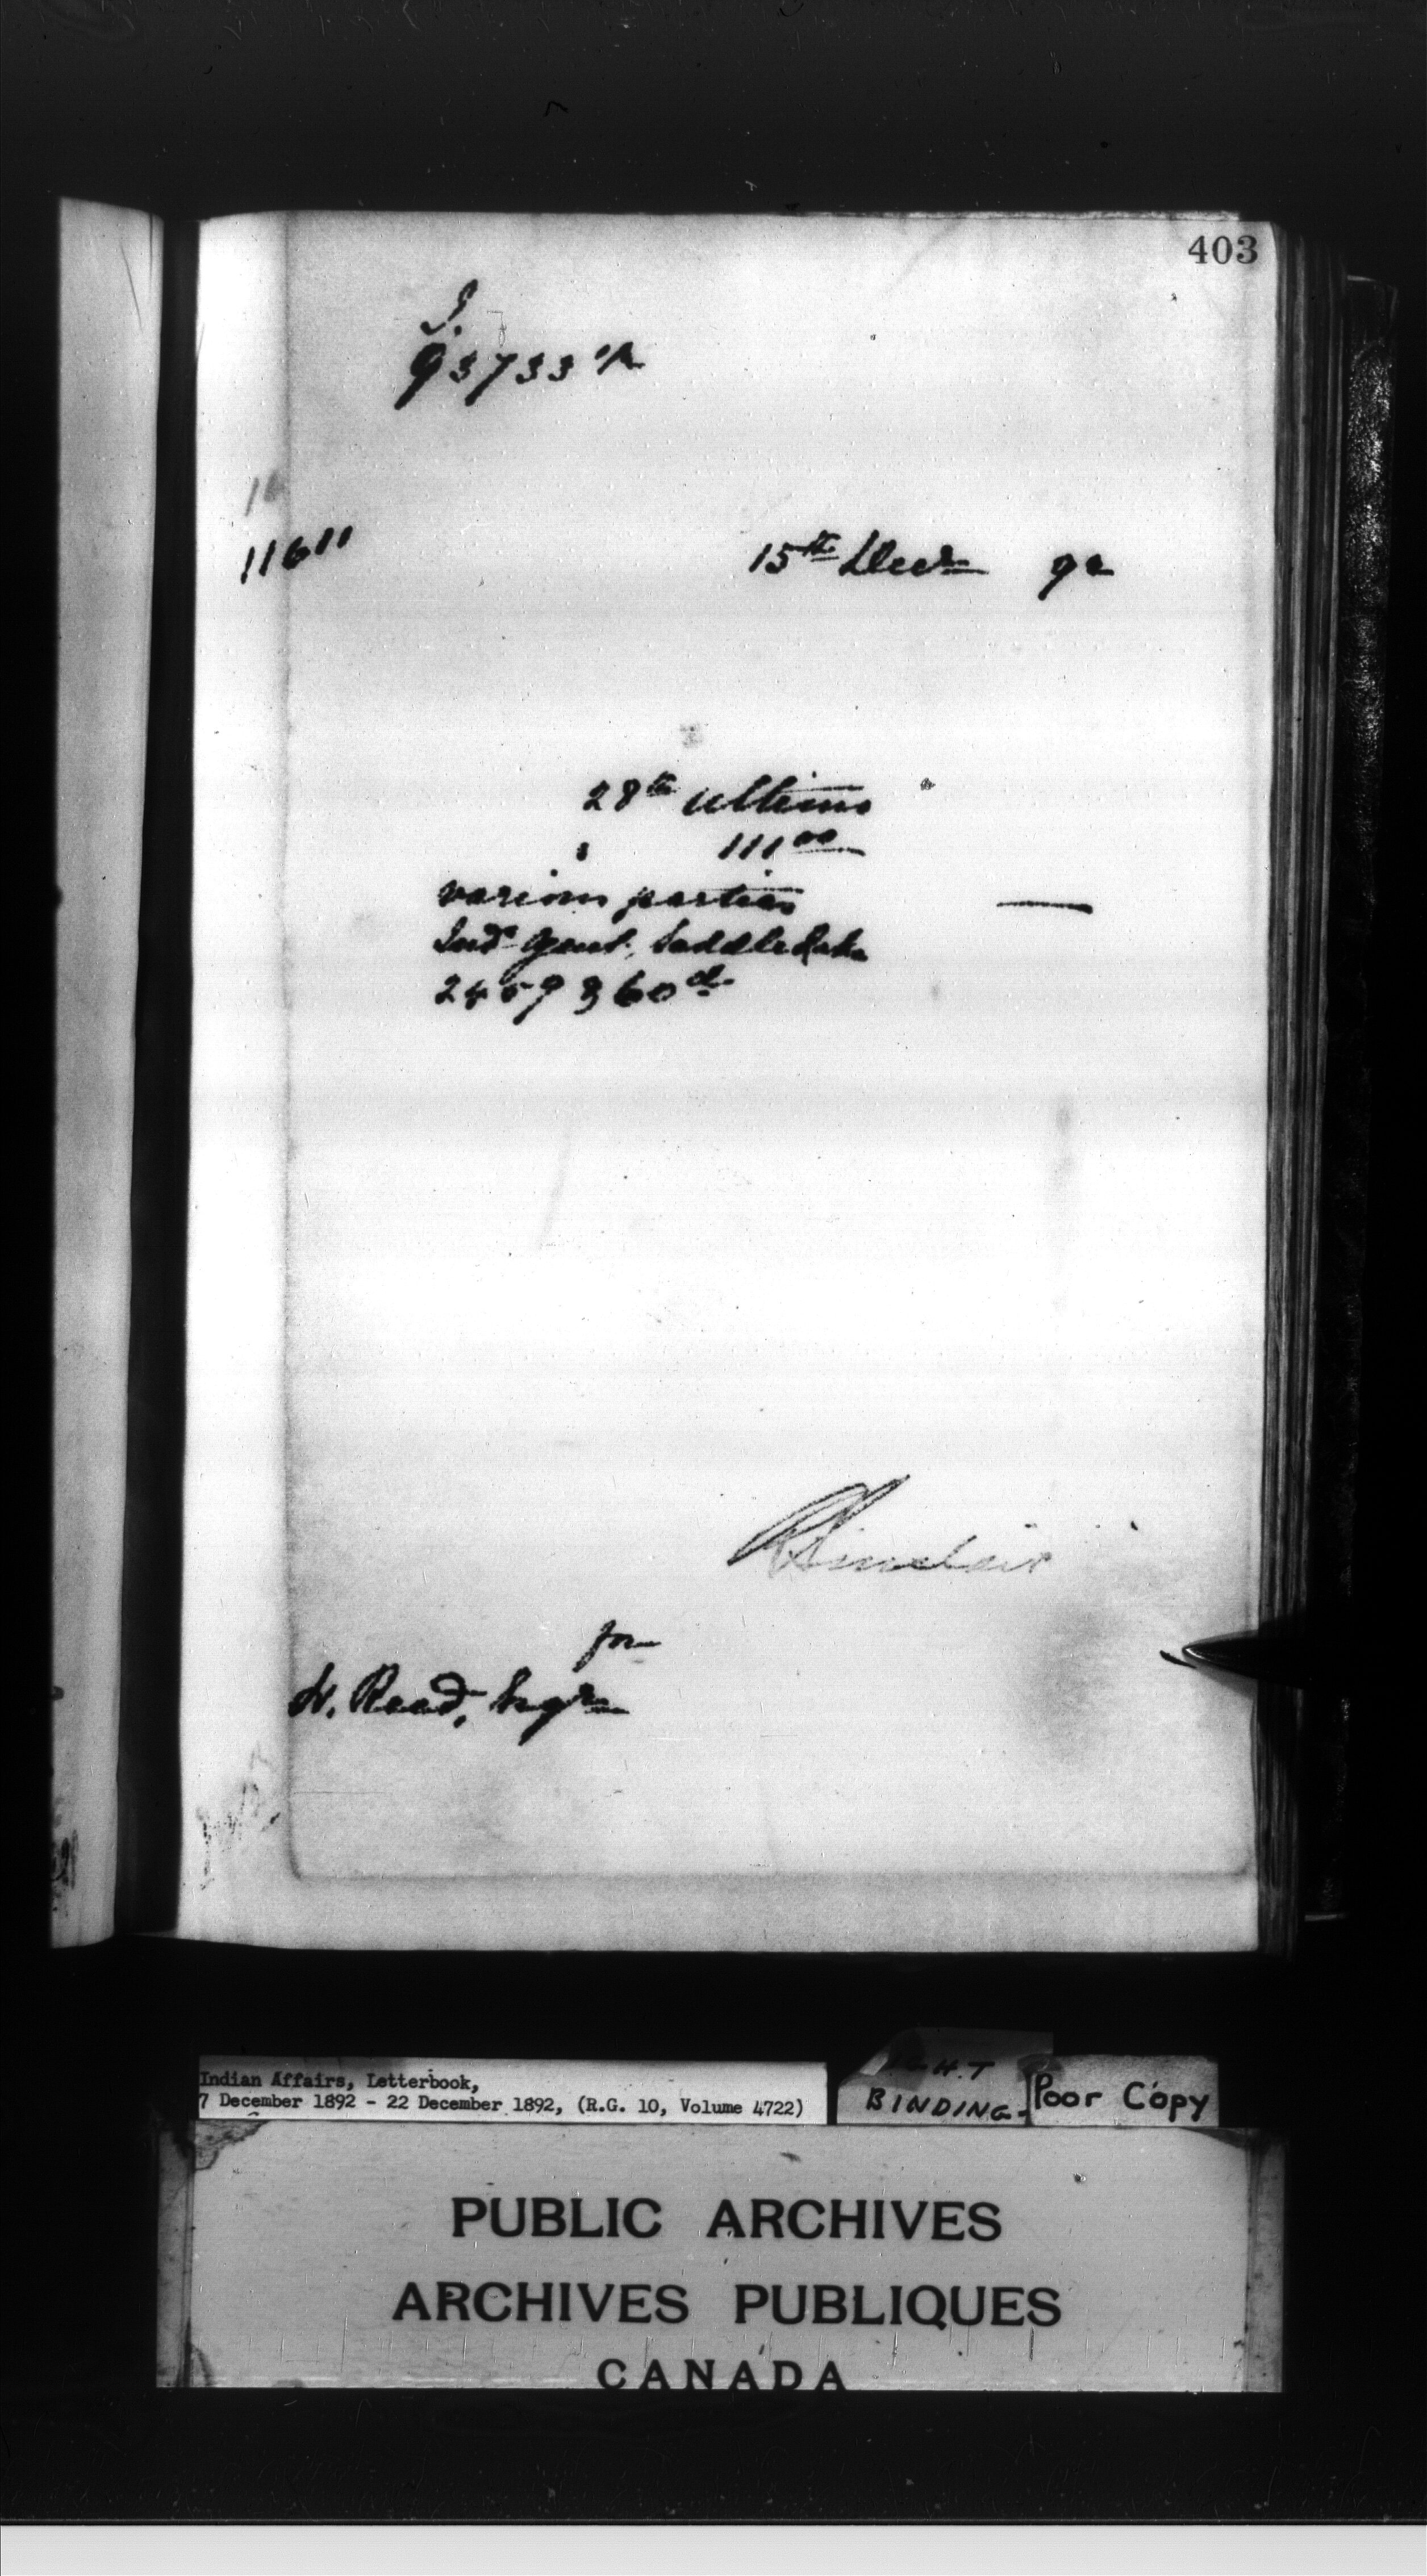 403
93733
11611
15th Decr 92
28th ultimo
111 00
various parties
Ind. Agent, Saddle Lake
2459 360
R Sinclair
for
H. Reed, Esqr
Indian Affairs, Letterbook,
7 December 1892 - 22 December 1892, (R.G. 10, Volume 4722)
BINDING
Poor Copy
PUBLIC ARCHIVES
ARCHIVES PUBLIQUES
CANADA